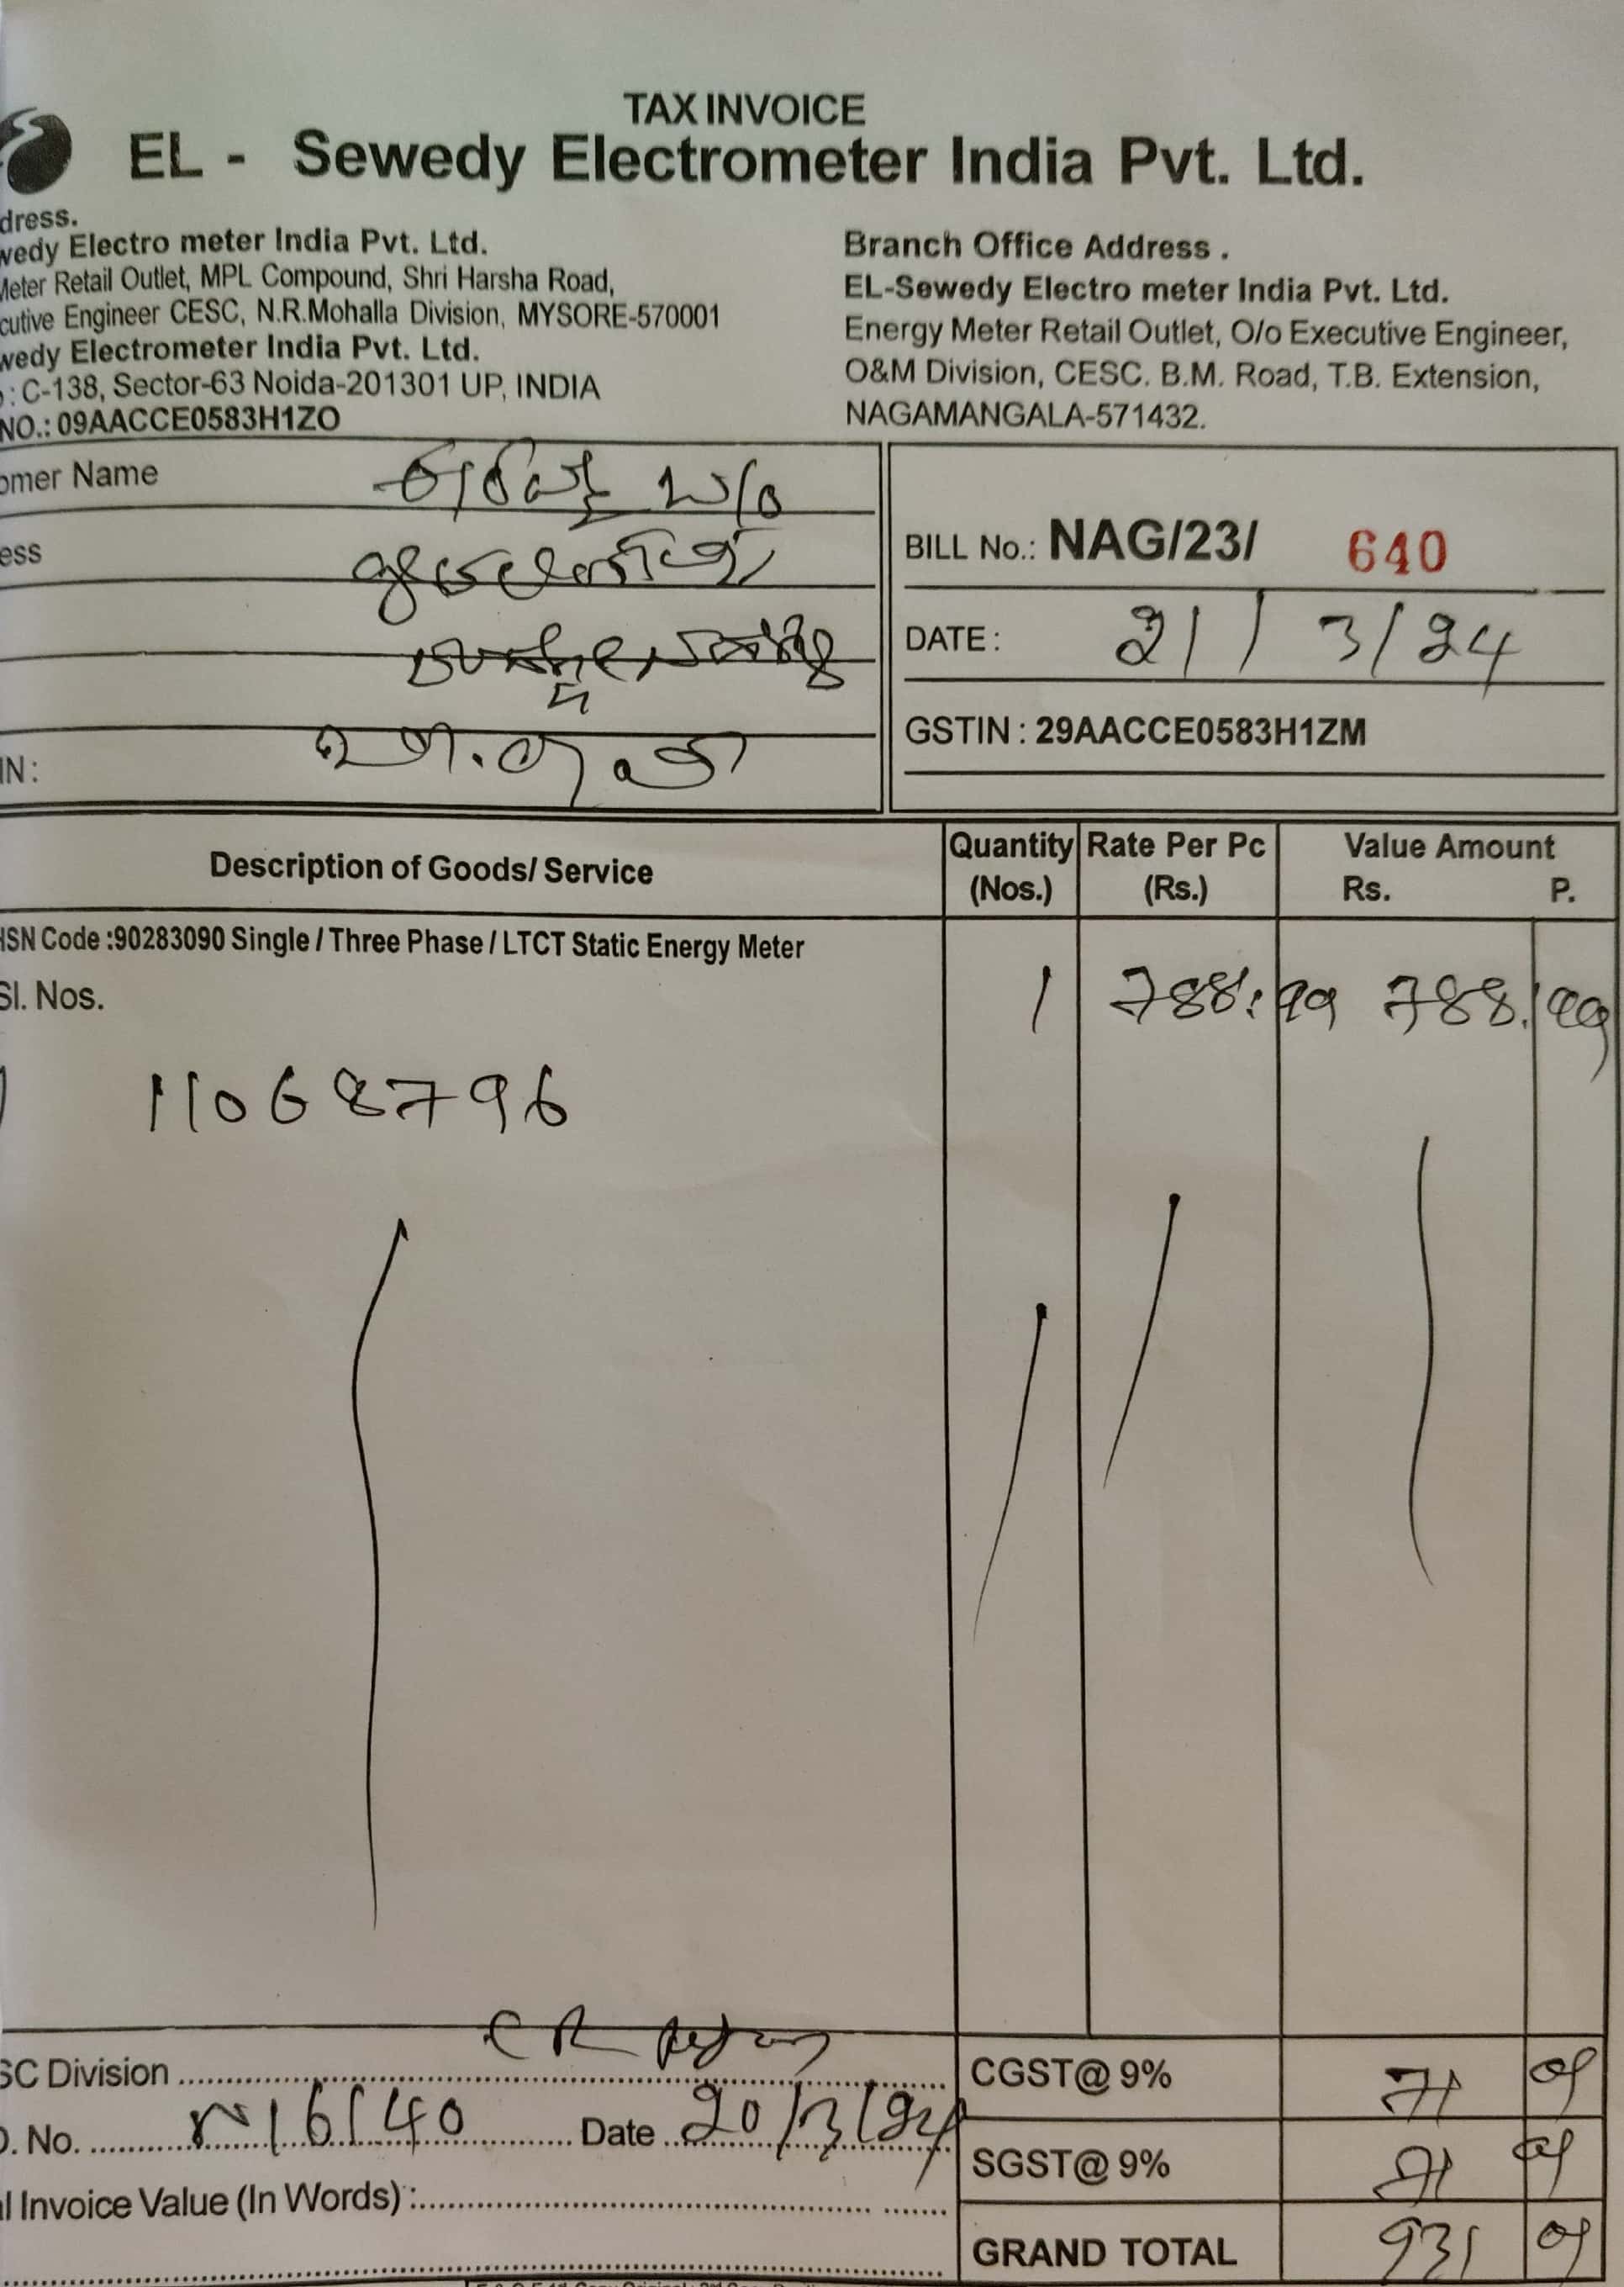 TAX INVOICE
EL - Sewedy Electrometer India Pvt. Ltd.
dress.
wedy Electro meter India Pvt. Ltd.
Meter Retail Outlet, MPL Compound, Shri Harsha Road,
cutive Engineer CESC, N.R.Mohalla Division, MYSORE-570001
wedy Electrometer India Pvt. Ltd.
: C-138, Sector-63 Noida-201301 UP, INDIA
NO.: 09AACCE0583H1ZO
Branch Office Address .
EL-Sewedy Electro meter India Pvt. Ltd.
Energy Meter Retail Outlet, O/o Executive Engineer,
O&M Division, CESC. B.M. Road, T.B. Extension,
NAGAMANGALA-571432.
omer Name
ess
IN:
BILL No.: NAG/23/ 640
DATE: 21/3/24
GSTIN : 29AACCE0583H1ZM
Description of Goods/ Service Quantity (Nos.) Rate Per Pc (Rs.) Value Amount Rs. P.
HSN Code :90283090 Single / Three Phase / LTCT Static Energy Meter
Sl. Nos. 1 788.99 788.99
11068796
SC Division
O. No. 16140 Date 20/3/24
l Invoice Value (In Words) :
CGST@ 9% 71 01
SGST@ 9% 71 01
GRAND TOTAL 931 01